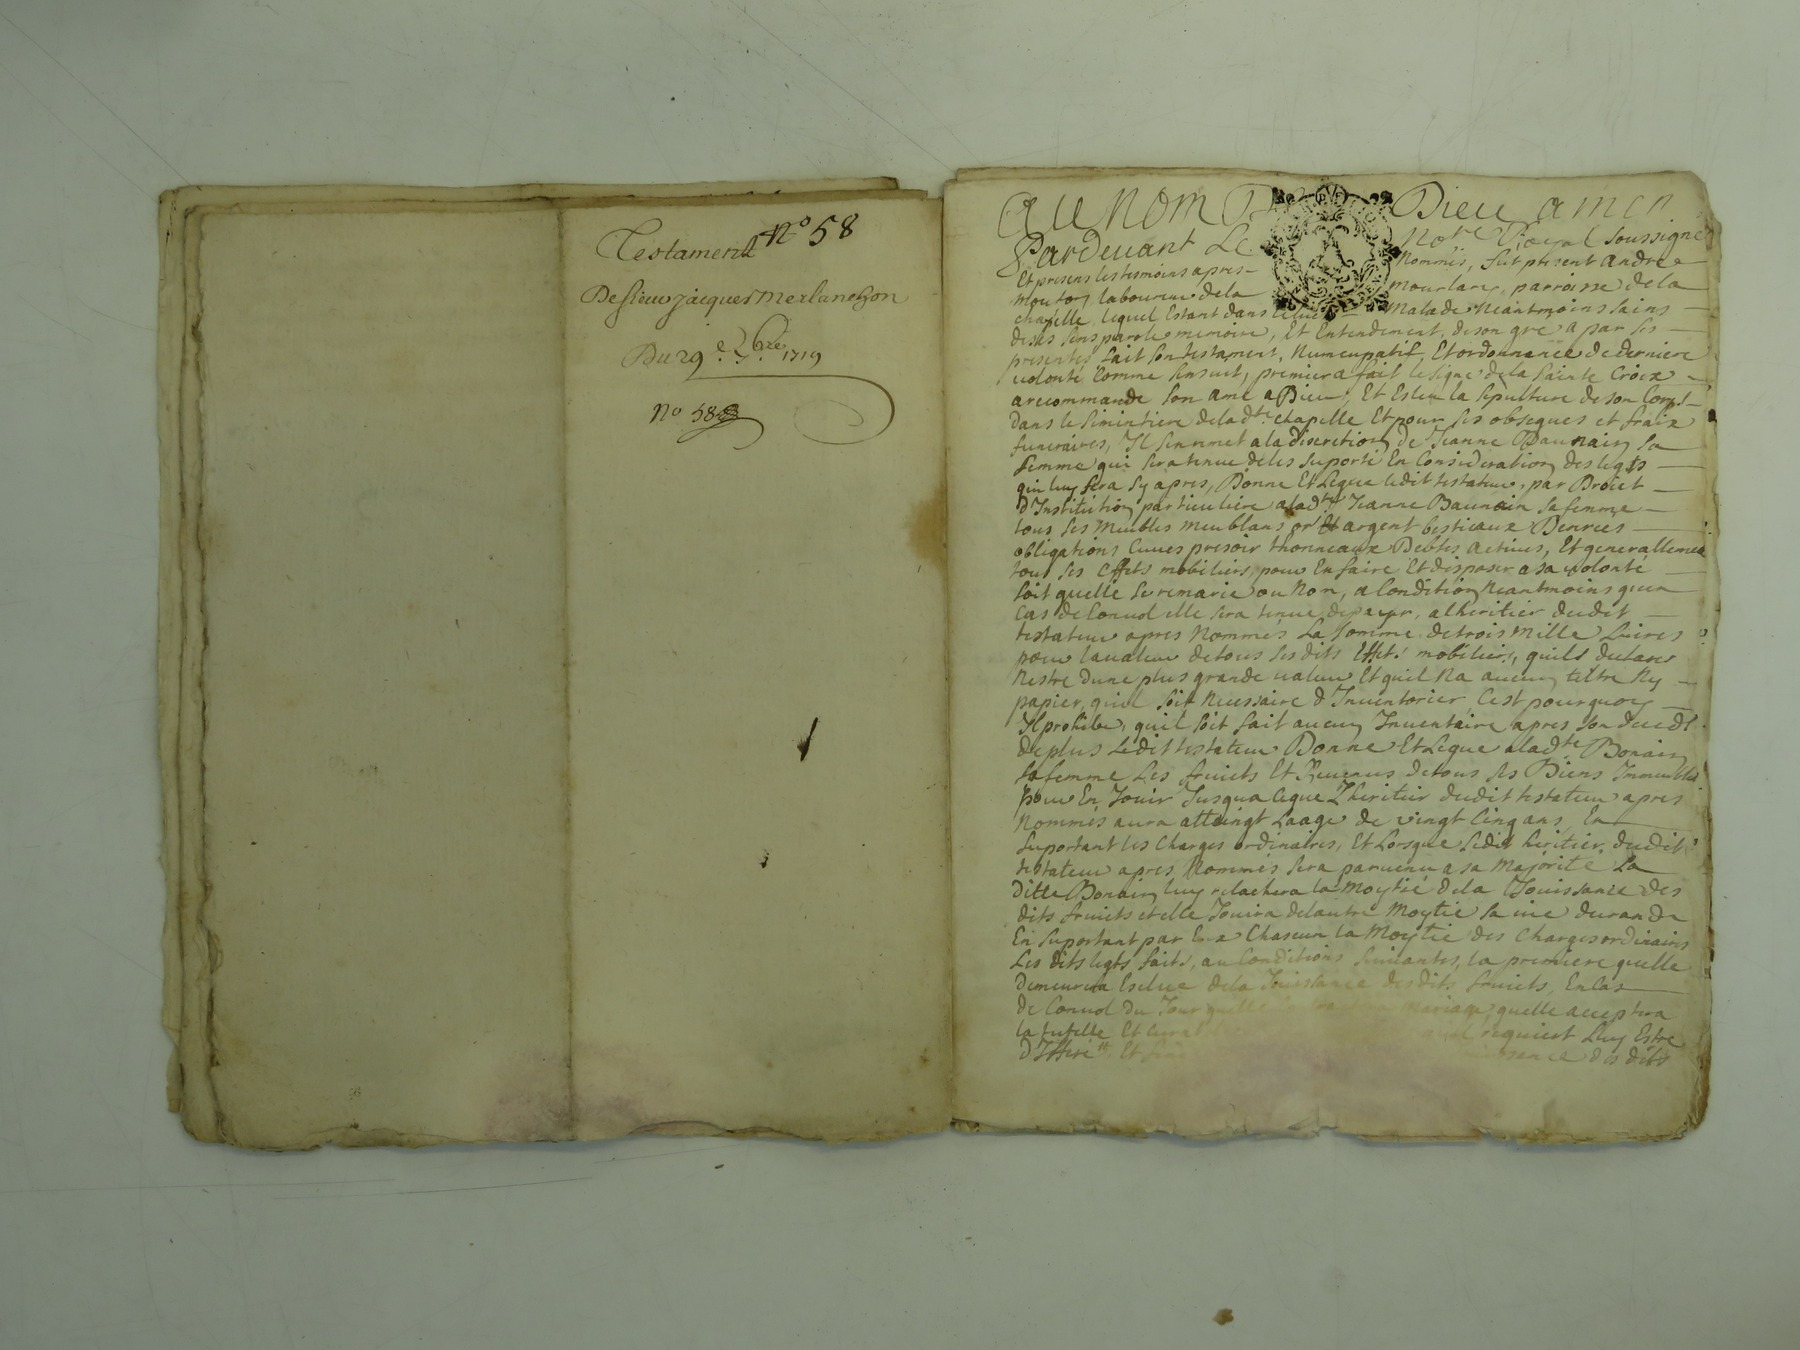 Testament n° 58
De sieur jacques merlanchon
Du 29e 7bre 1719
N° 58
Au nom De Dieu amen
Pardevant Le Notre Royal soussigné
Et presens les tesmoins apres nommés, fut present andré
mouton laboureur dela parroisse dela
chapelle lequel Estant dans Malade Neantmoins sains
deses sens parole memoire, Et Entendement, deson gré a par ses
presentes fait son testament, Nuncupatif, Et ordonnance de derniere
volonté Comme sensuit, premier a fait le signe dela sainte Croix
a recommandé son ame a Dieu, Et Esleu la sepulture de son Corps
dans le simintiere delad.te chapelle Et pour ses obseques et fraix
funeraires, Il sen remet a la discretion de Jeanne Baunain sa
femme qui sera tenue deles suporté En Consideration des legts
quil luy fera sy apres, Donne Et Legue ledit testateur, par Droict
d'Institution particuliere alad.te Jeanne Baunain sa femme
tous ses meubles meublans or Et argent bestieaux Denrees
obligations Cuves presoir thonneaux Debtes actives, Et generallement
tous ses Effets mobiliers, pour En faire Et disposer a sa volonté
soit quelle se remarie ou Non, a Condition Neantmoins quen
Cas de Convol elle sera tenue de payer, a lheritier dudit
testateur apres Nommés La somme de trois mille Livres
pour la valeur de tous ses dits Effets mobiliers, quils declares
Nestre dune plus grande valeur Et quil Na aucun tiltre Ny
papier, quil soit Necessaire d'Inventorier, Cest pourquoy
Il prohibe, quil soit fait aucun Inventaire apres son deceds
de plus Ledit testateur Donne Et Legue alad.te Bonain
sa femme Les fruicts Et Revenus de tous ses Biens Immeubles
pour En Jouir Jusqua ceque Lheritier dudit testateur apres
Nommés aura atteingt Laage de vingt Cinq ans En
suportant les Charges ordinaires, Et Lorsque ledit heritier dudit
testateur apres Nommés sera parvenu a sa Majorité La
Ditte Bonain luy relachera la Moytié dela Jouissance des
dits fruicts et elle Jouira delautre Moytié sa vie durande
En suportant par Eux Chascun la Moytié des Charges ordinaires
Les dits legts faits, au Conditions suivantes, la premiere quelle
demeurera Esclue dela Jouissance desdits fruicts, En Cas
de Convol du Jour quelle mariage, quelle acceptera
la tutelle Et requiert Luy Estre
Et des dits